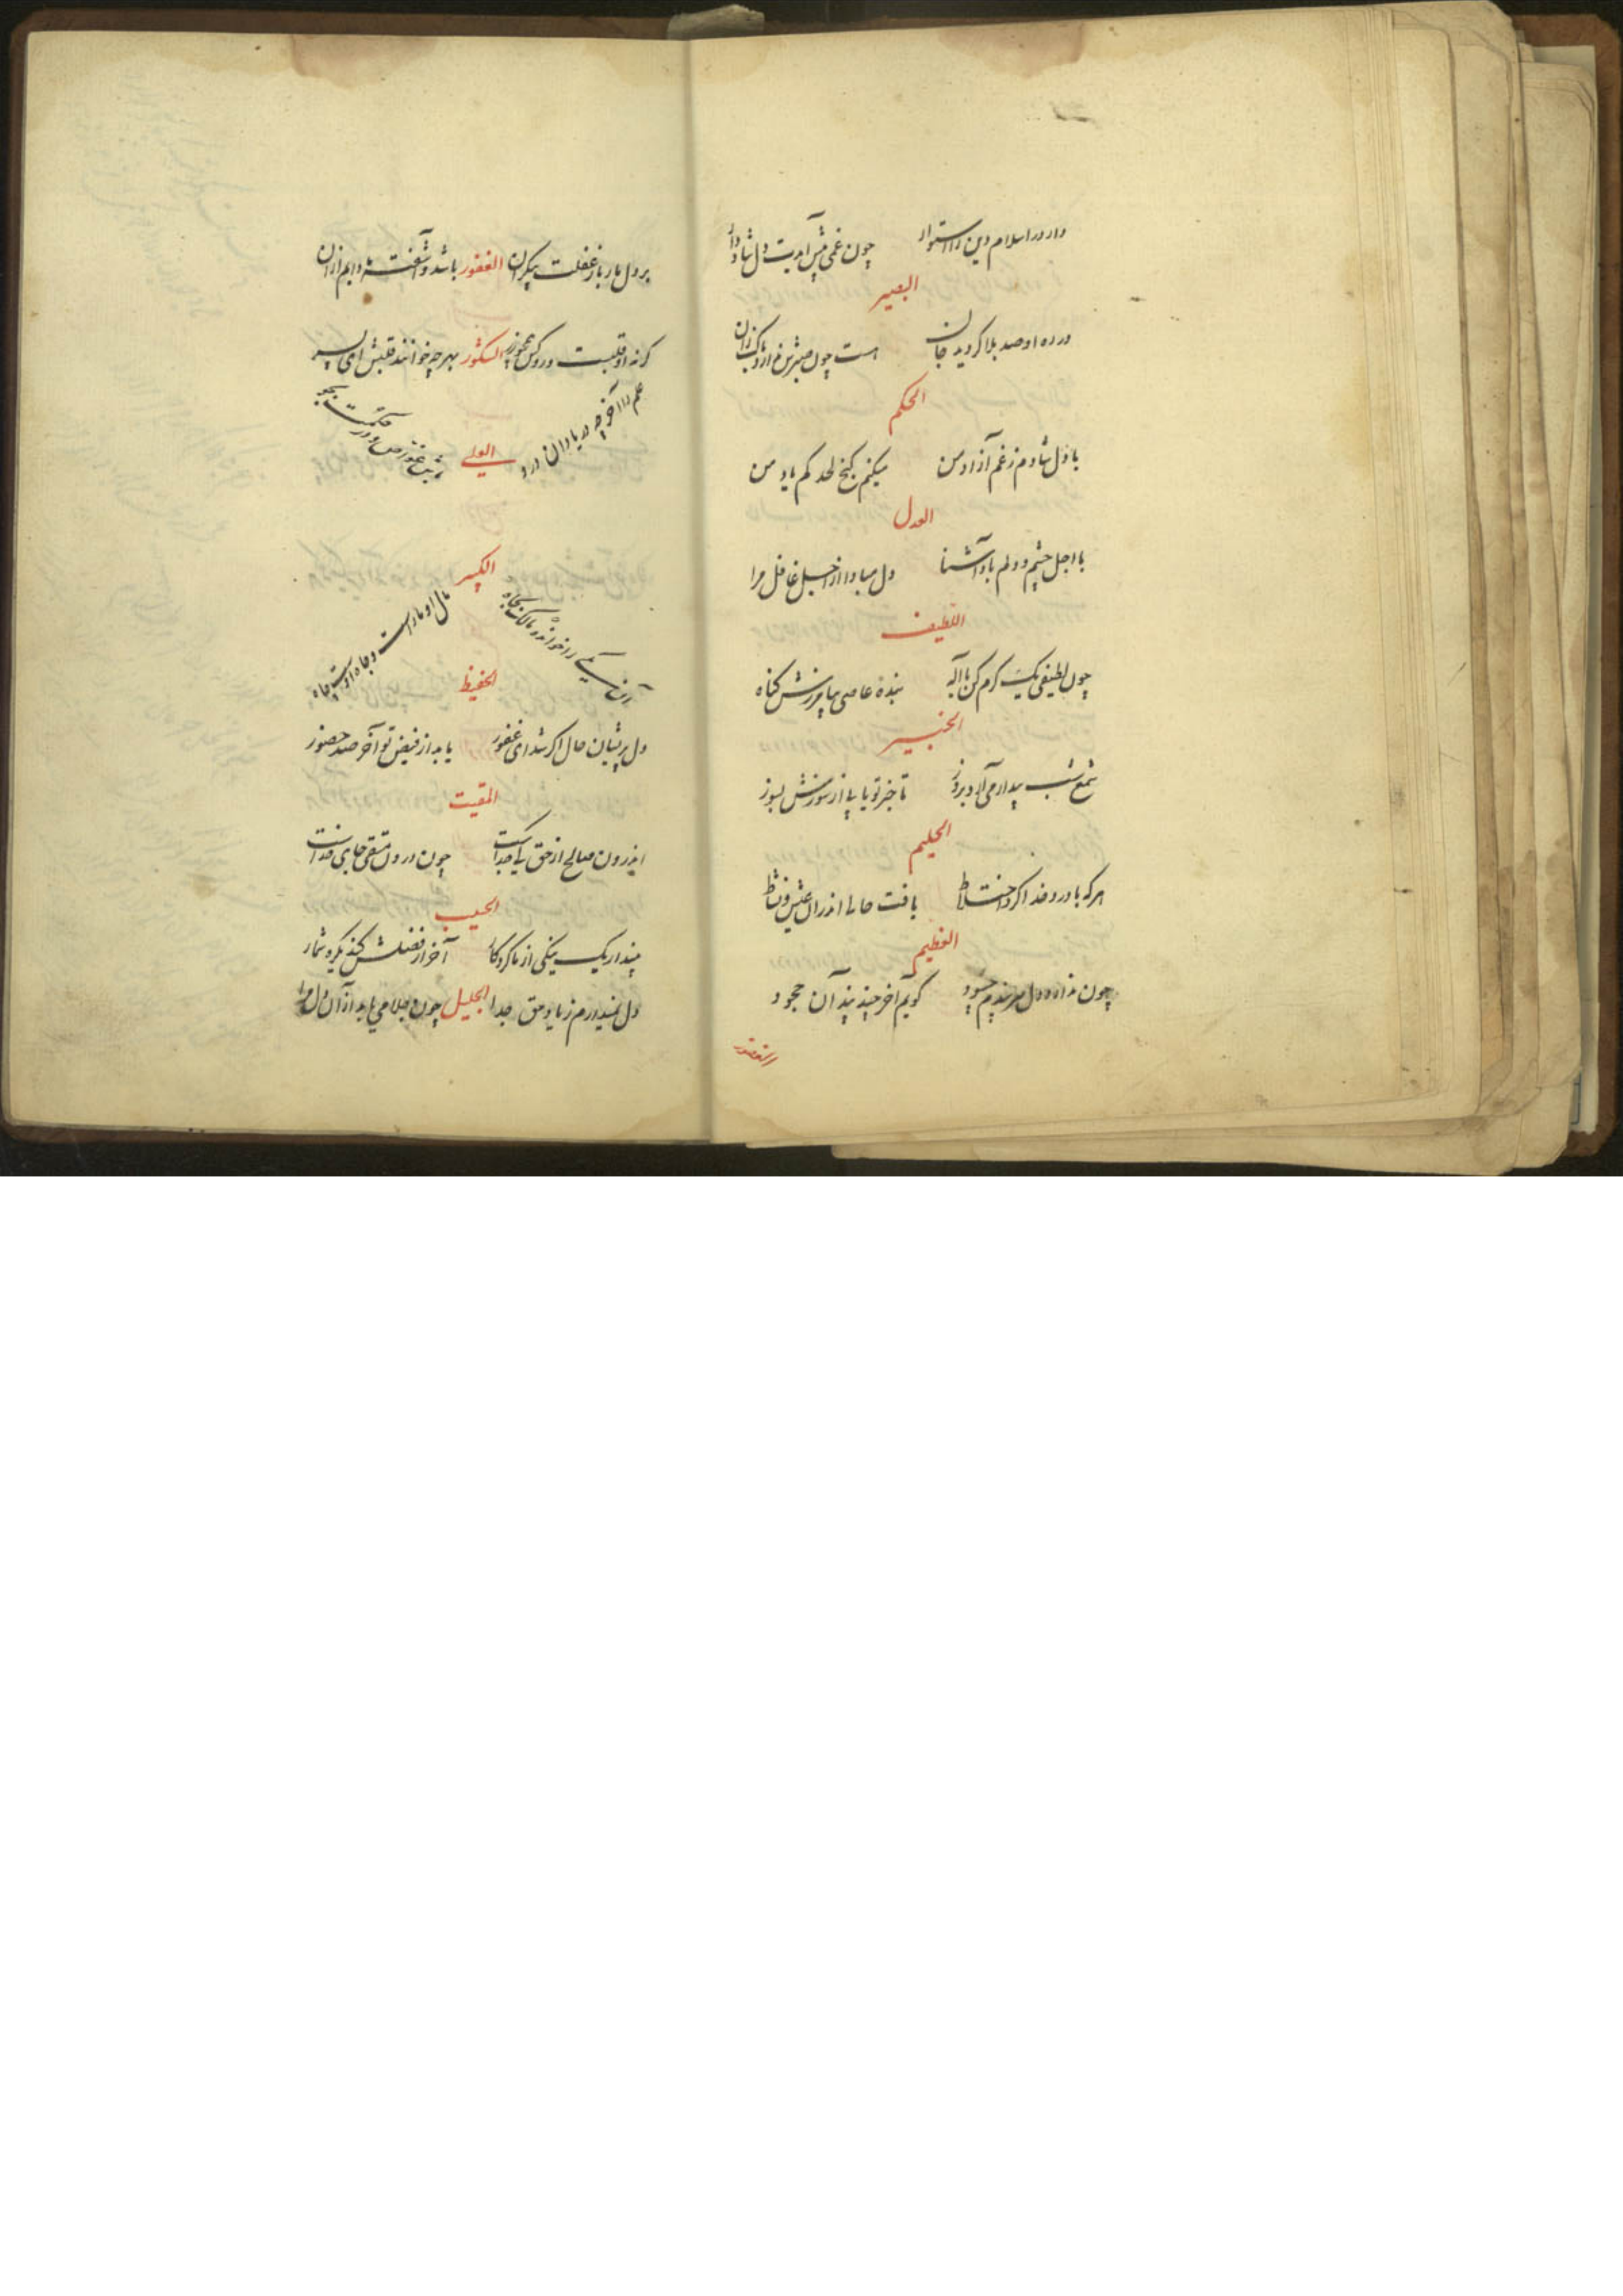 دار در اسلام دین را استوار چون غمی پیش آیدت دل شاد دار
البصیر
در ره او صد بلا کردید جان هست چون صبرش
الحکم
با دل شادم ز غم آزاد من میکنم کنج لحد کم یاد من
العدل
با اجل چشم و دلم باد آشنا دل مبادا از اجل غافل مرا
اللطیف
چون لطیفی یک کرم کن یا اله بندهٔ عاصی بیامرزش کناه
الخبیر
شمع شب بیدار می آید بروز تا خبر تو یابی از سوزش بسوز
الحلیم
هر که با درد خدا کرد اختلاط یافت حالی اندران عیش و نشاط
العظیم
چون نداده دل حسود کویم آخر چند بیند آن جحود
الغفور
بر دل بار باز غفلت بیکران الغفور باشد و آشفته دایم ازان
کر نه او قلبست الشکور بهر چه خوانند قلبش ای پسر
علم را آخر چه دریا دان درو العلی غوص و در حکمت بجو
الکبیر
مال او مار است و جاه اوست چاه
الحفیظ
دل پریشان حال اکر شد ای غفور یابد از فیض تو آخر صد حضور
المقیت
اندرون صالح از حق کی جداست چون درون متقی جای خداست
الحسیب
بیند ار یک نیکی از ما کردکار آخر از فضلش کند یک را شمار
دل نمیدارم ز یاد حق جدا الجلیل چون جلا می یابد از آن دل مرا